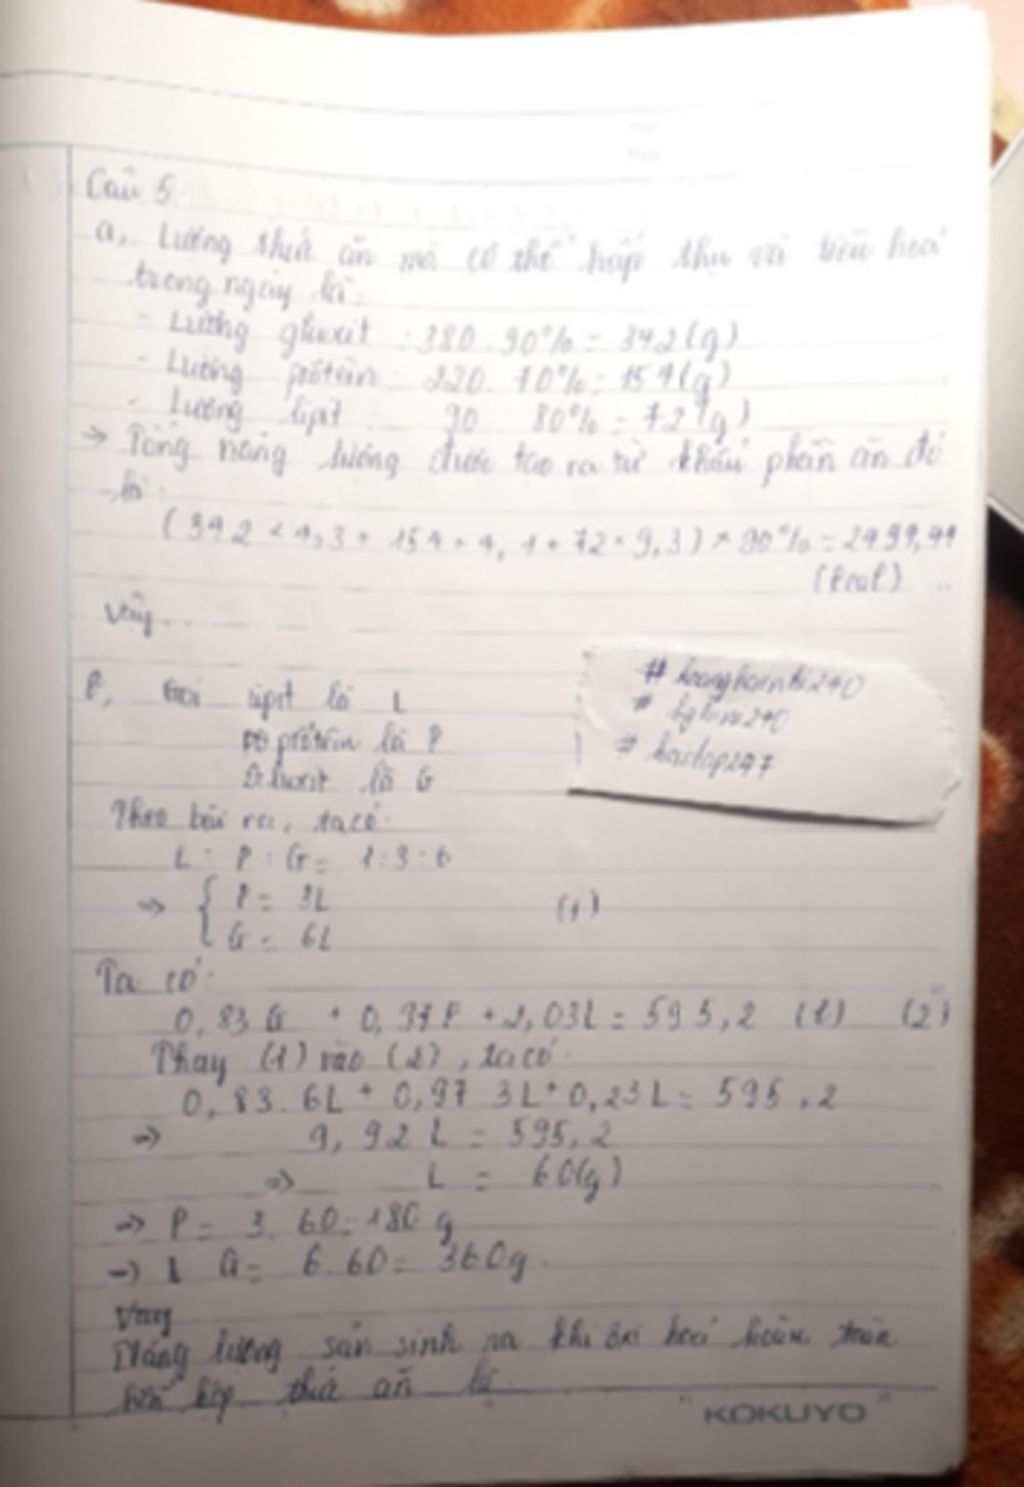 Câu 5.
a, Lượng thức ăn mà có thể hấp thụ và tiêu hoá
trong ngày là:
- Lượng gluxit : 380 . 90% = 342 (g)
- Lượng prôtêin : 220 . 70% = 154 (g)
- Lượng lipit : 90 . 80% = 72 (g)
=> Tổng năng lượng được tạo ra từ khẩu phần ăn đó
là :
(342 × 4,3 + 154 × 4,1 + 72 × 9,3) × 90% = 2499,44
(kcal)
Vậy...
Gọi lipit là L
prôtêin là P
Gluxit là G
Theo bài ra, ta có:
L : P : G = 1 : 3 : 6
=> { P = 3L (1)
G = 6L
Ta có:
0,83G + 0,97P + 2,03L = 595,2 (l) (2)
Thay (1) vào (2), ta có:
0,83. 6L + 0,97 3L + 0,23L = 595,2
=> 9,92L = 595,2
=> L = 60(g)
=> P = 3. 60 = 180 g
=> G = 6 60 = 360g.
Vậy
Năng lượng sản sinh ra khi ôxi hoá hoàn toàn
hỗn hợp thức ăn là
KOKUYO